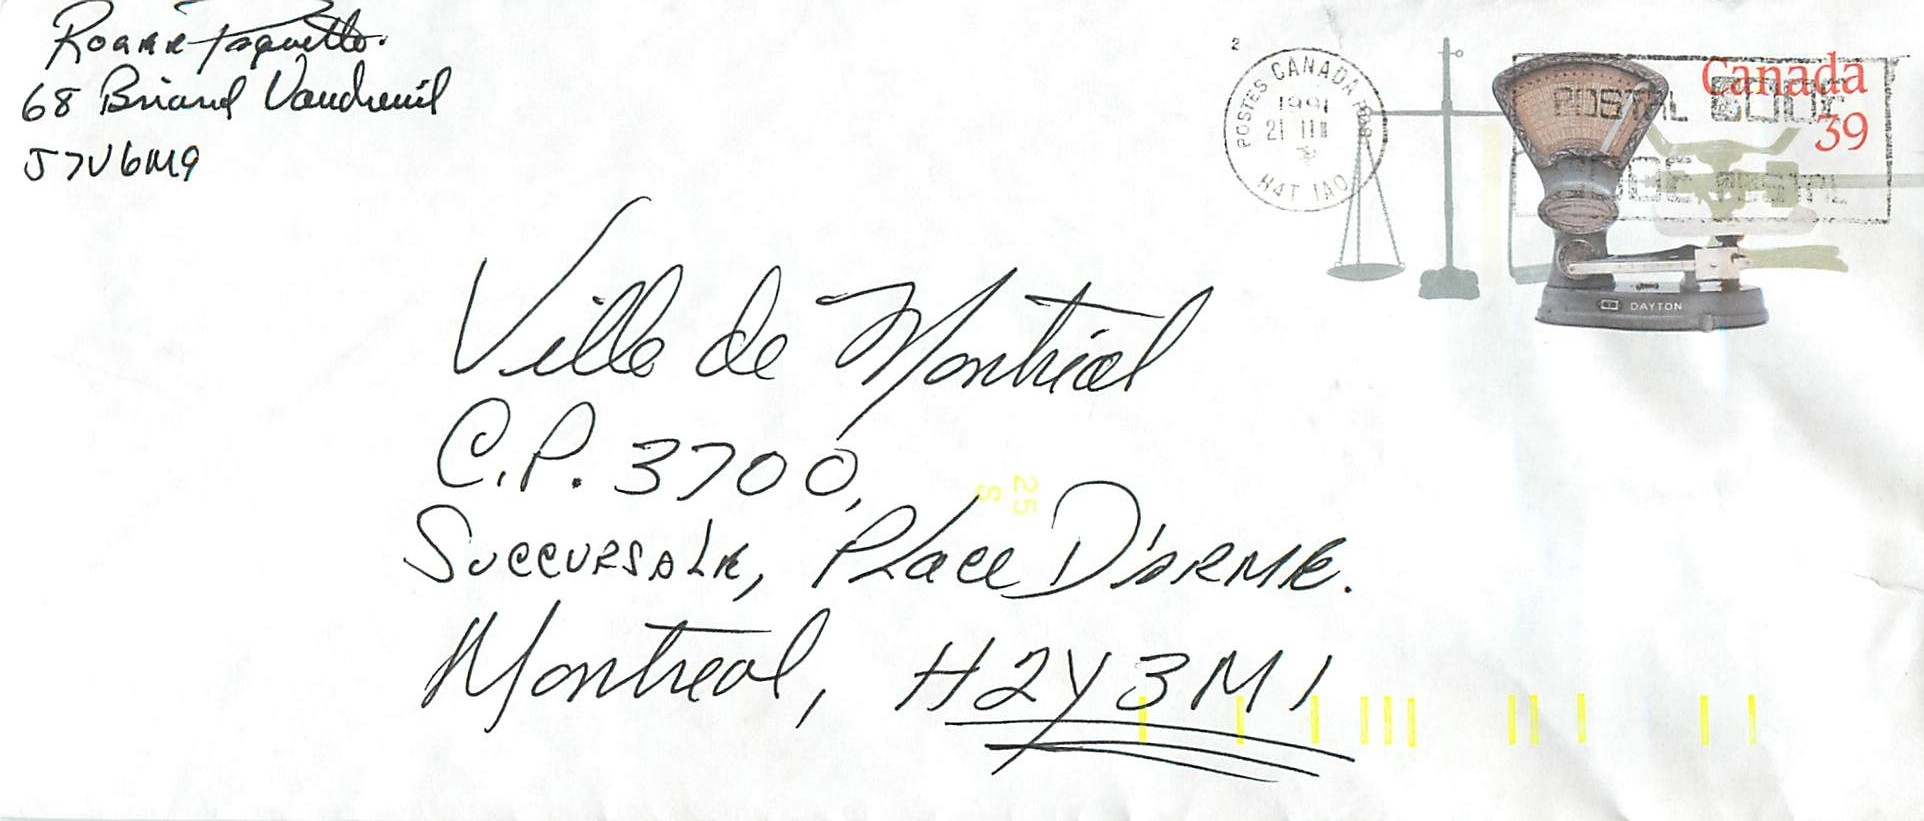 Roger Paquette.
68 Briand Vaudreuil
J7V6M9
2
POSTES CANADA POST
1991
21 III
H4T 1A0
Canada
39
POSTAL CODE
CODE POSTAL
DAYTON
Ville de Montréal
C.P. 3700,
25
S
Succursale, Place D'arme.
Montreal, H2Y3M1